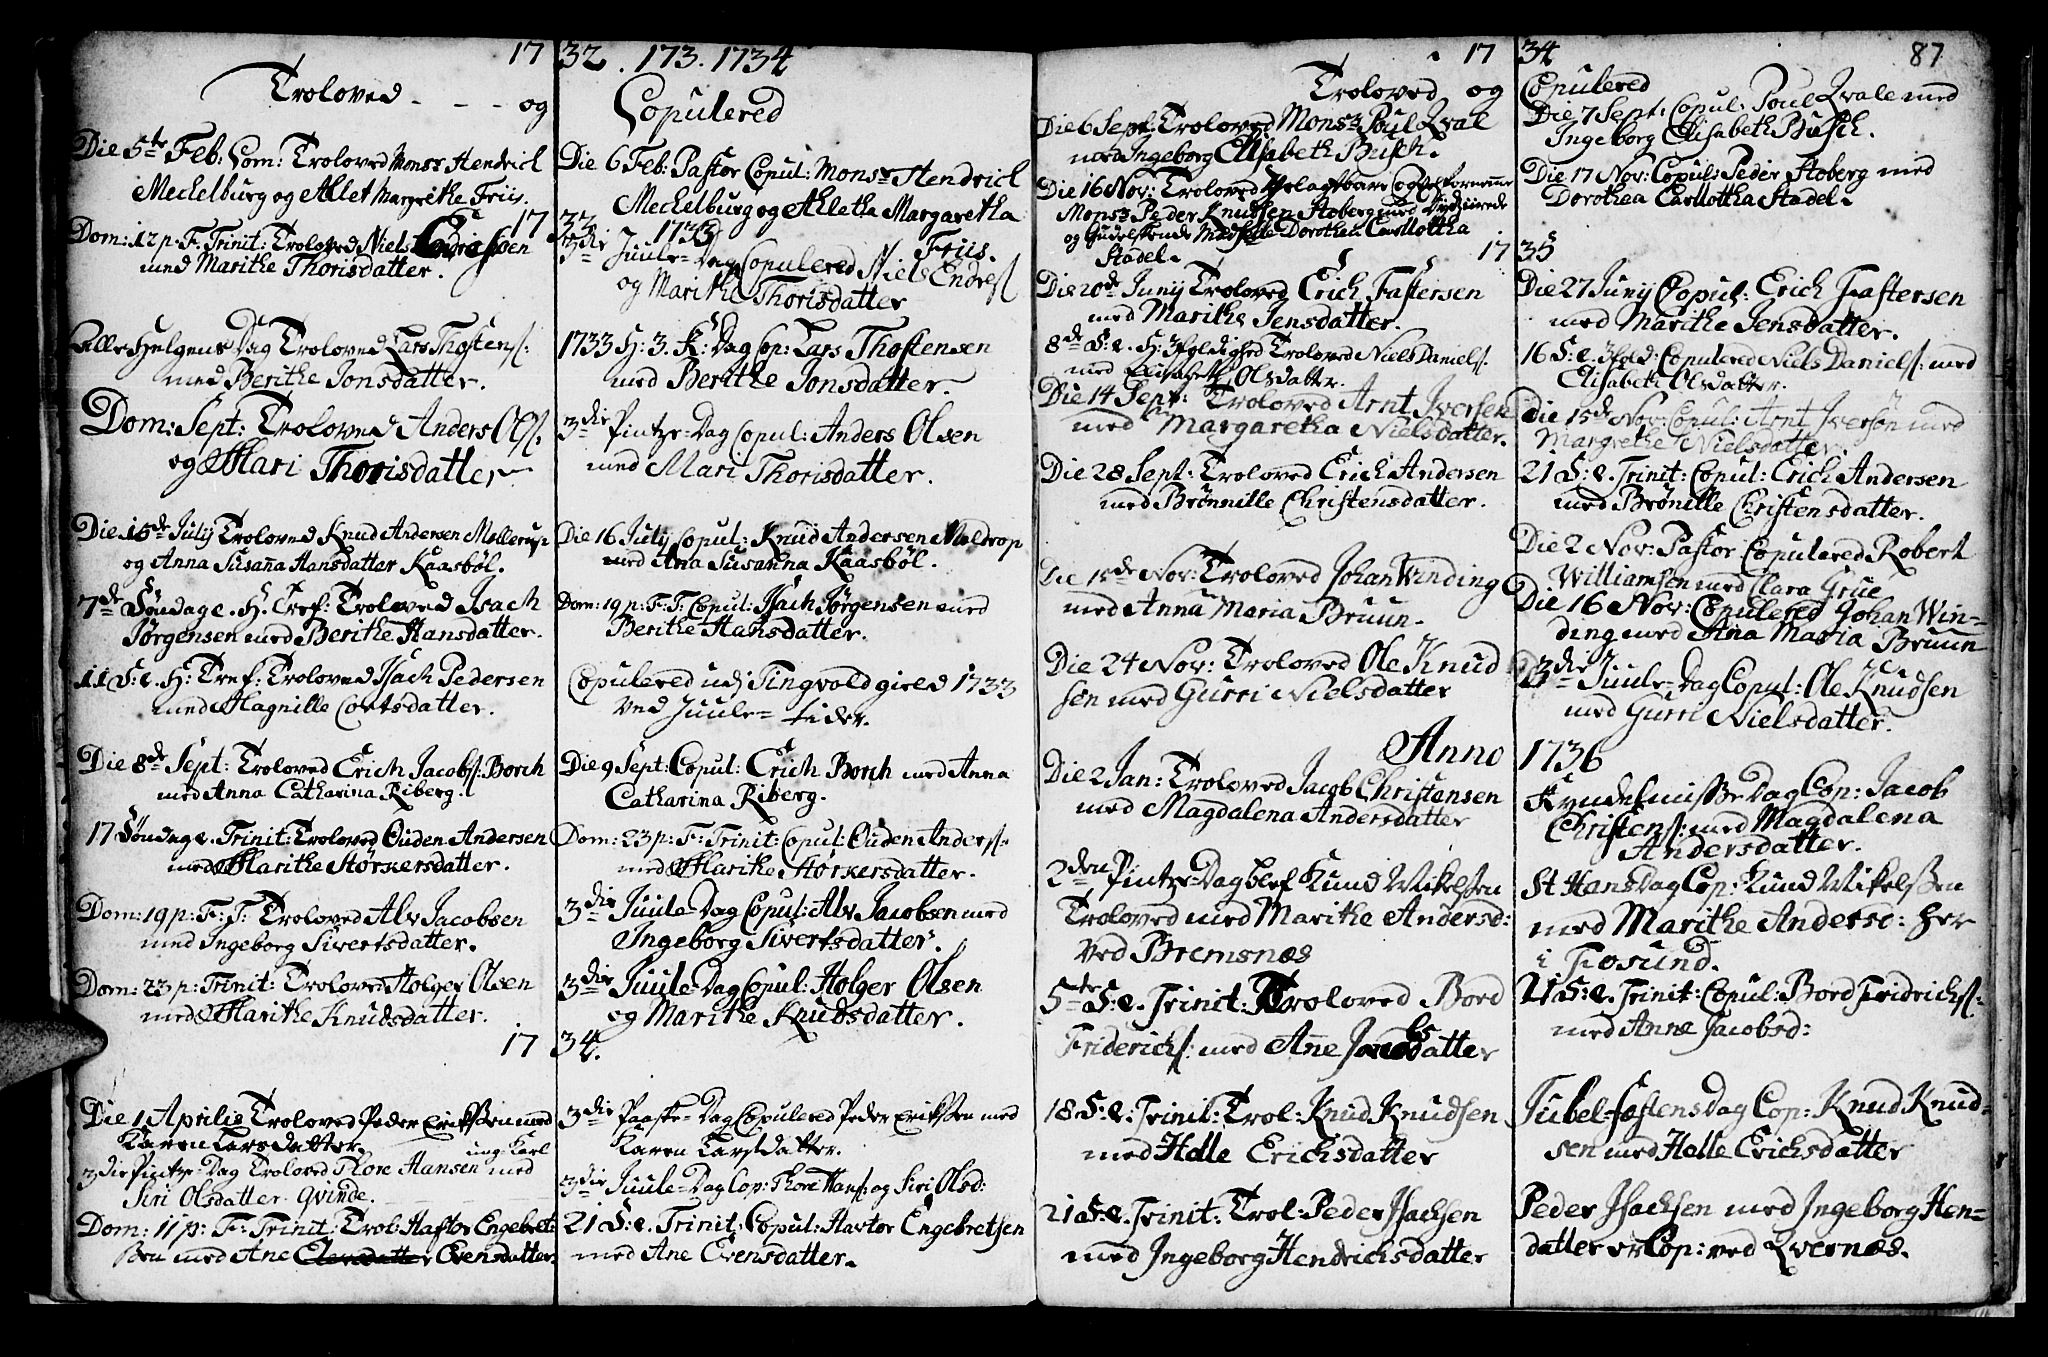 1732. 173. 1734
Troloved - - - og
Die 5te Feb: Dom: Troloved Monsr Hendrich
Mechelburg og Ahlet Margrethe Friis.
17
Dom: 12 p. F. Trinit: Troloved Niels Endresen
med Marithe Thorisdatter.
Alle Helgens Dag Troloved Lars Thostens:
med Berithe Jonsdatter.
Dom: Sept: Troloved Anders Ols:
og Mari Thorisdatter
Die 15de July Troloved Knud Andersen
og Anna Susana Hansdatter Kaasbøl.
7de Søndag e. H. Tref: Troloved Isach
Jørgensen med Berithe Hansdatter.
11 S: e. H: Tref: Troloved Isach Pedersen
med Magnille Cortsdatter.
Die 8de Sept: Troloved Erich Jacobs: Borch
med Anna Catharina Riberg.
17 Søndag e. Trinit: Troloved Ouden Andersen
med Marithe Størkersdatter.
Dom: 19 p: F: T: Troloved Alv Jacobsen
med Ingeborg Sivertsdatter.
Dom: 23 p: Trinit: Troloved Holger Olsen
med Marithe Knudsdatter.
17
Die 1 Aprilis Troloved Peder Erikssen med
Karen Larsdatter.
ung Karl
3die Pintze-Dag Troloved Thore Hansen med
Siri Olsdatter qvinde.
Dom: 11 p: F: Trinit: Trol: Haftor Engebret-
sen med Ane Evensdatter
Copulered
Die 6 Feb: Pastor Copul: Monsr Hendrich
Mechelburg og Ahletha Margaretha
Friis.
33
1733
3die Juule-Dag Copulered Niels Endres:
og Marithe Thorisdatter
1733 H: 3. K: Dag Cop: Lars Thostensen
med Berithe Jonsdatter.
3die Pintze-Dag Copul: Anders Olsen
med Mari Thorisdatter.
Die 16 July Copul: Knud Andersen Meldrop
med Ana Susanna Kaasbøl.
Dom: 19 p: F: T: Copul: Isach Jørgensen med
Berithe Hansdatter.
Copulered udj Tingvold gield 1733
ved Juule-tider.
Die 9 Sept: Copul: Erich Borch med Anna
Catharina Riberg.
Dom: 23 p: F: Trinit: Copul: Ouden Anders:
med Marithe Størkersdatter.
3die Juule-Dag Copul: Alv Jacobsen med
Ingeborg Sivertsdatter.
3die Juule-Dag Copul: Holger Olsen
og Marithe Knudsdatter.
34.
3die Paaske-Dag Copulered Peder Erikssen med
Karen Larsdatter.
3die Juule-Dag Cop: Thore Hans: og Siri Olsd:
21 S: e. Trinit: Copul: Havtor Engebretsen
med Ane Evensdatter.
1734
87
Troloved og
Die 6 Sept: Troloved Monsr Poul Qvale
med Ingeborg Elisabeth Busch.
Die 16 Nov: Troloved Velagtbare og Velfornemme
Monsr Peder Knudsen Stoberg med Dydziirede
og Gudelskende Madselle Dorothea Carllottha
Stadel.
17
Die 20de Junij Troloved Erich Fastersen
med Marithe Jensdatter.
8de S: e. H: 3foldighed Troloved Niels Daniels:
med Elisabeth Olsdatter.
Die 14 Sept: Troloved Arnt Iversen
med Margaretha Nielsdatter.
Die 28 Sept: Troloved Erich Andersen
med Brønnille Christensdatter.
Die 15de Nov: Troloved Johan Winding
med Anna Maria Bruun.
Die 24 Nov: Troloved Ole Knud
sen med Gurri Nielsdatter
Anno
Die 2 Jan: Troloved Jacob Christensen
med Magdalena Andersdatter
2den Pintze-Dag blef Knud Mikelsen
Troloved med Marithe Andersd:
ved Bremsnæs
5te S: e. Trinit: Troloved Bord
Friderichs: med Ane Jacobsdatter
18 S: e. Trinit: Trol: Knud Knudsen
med Helle Erichsdatter
21 S: e. Trinit: Trol: Peder Isachsen
med Ingeborg Hendrichsdatter
Copulered
Die 7 Sept: Copul: Poul Qvale med
Ingeborg Elisabeth Busch.
Die 17 Nov: Copul: Peder Stoberg med
Dorothea Carllottha Stadel.
35
Die 27 Junij Copul: Erich Fastersen
med Marithe Jensdatter.
16 S: e. 3fold: Copulered Niels Daniels: med
Elisabeth Olsdatter.
Die 15de Nov: Copul: Arnt Iversøn med
Margrethe Nielsdatter.
21 S: e. Trinit: Copul: Erich Andersen
med Brønille Christensdatter.
Die 2 Nov: Pastor Copulered Robert
Williamsen med Clara Grue
Die 16 Nov: Copulered Johan Win-
ding med Ana Maria Bruun
3die Juule-Dag Copul: Ole Knudsen
med Gurri Nielsdatter.
1736
Kyndelmisse Dag Cop: Jacob
Christens: med Magdalena
Andersdatter.
St Hans Dag Cop: Knud Mikelssen
med Marithe Andersd: her
i Fosund.
21 S: e. Trinit: Copul: Bord Fridrichs:
med Anne Jacobsd:
Jubel-festens Dag Cop: Knud Knud-
sen med Helle Erichsdatter
Peder Isachsen med Ingeborg Hen-
datter er Cop: ved Qvernæs.